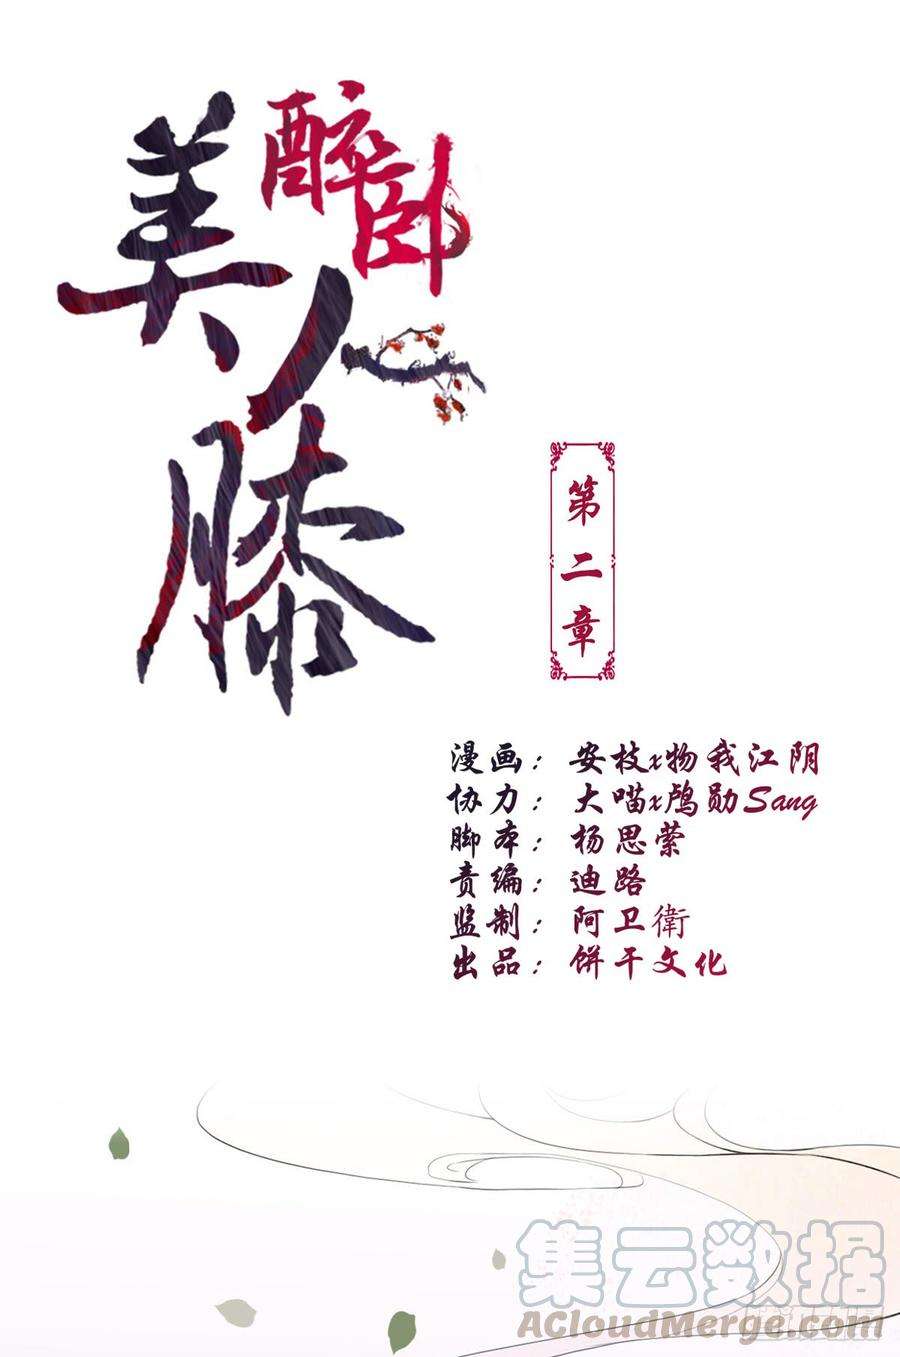 醉卧
美人
膝
第二章
漫画：安枝x物我江阴
协力：大喵x鸬勋Sang
脚本：杨思萦
责编：迪路
监制：阿卫衛
出品：饼干文化
集云数据
AcloudMerge.com